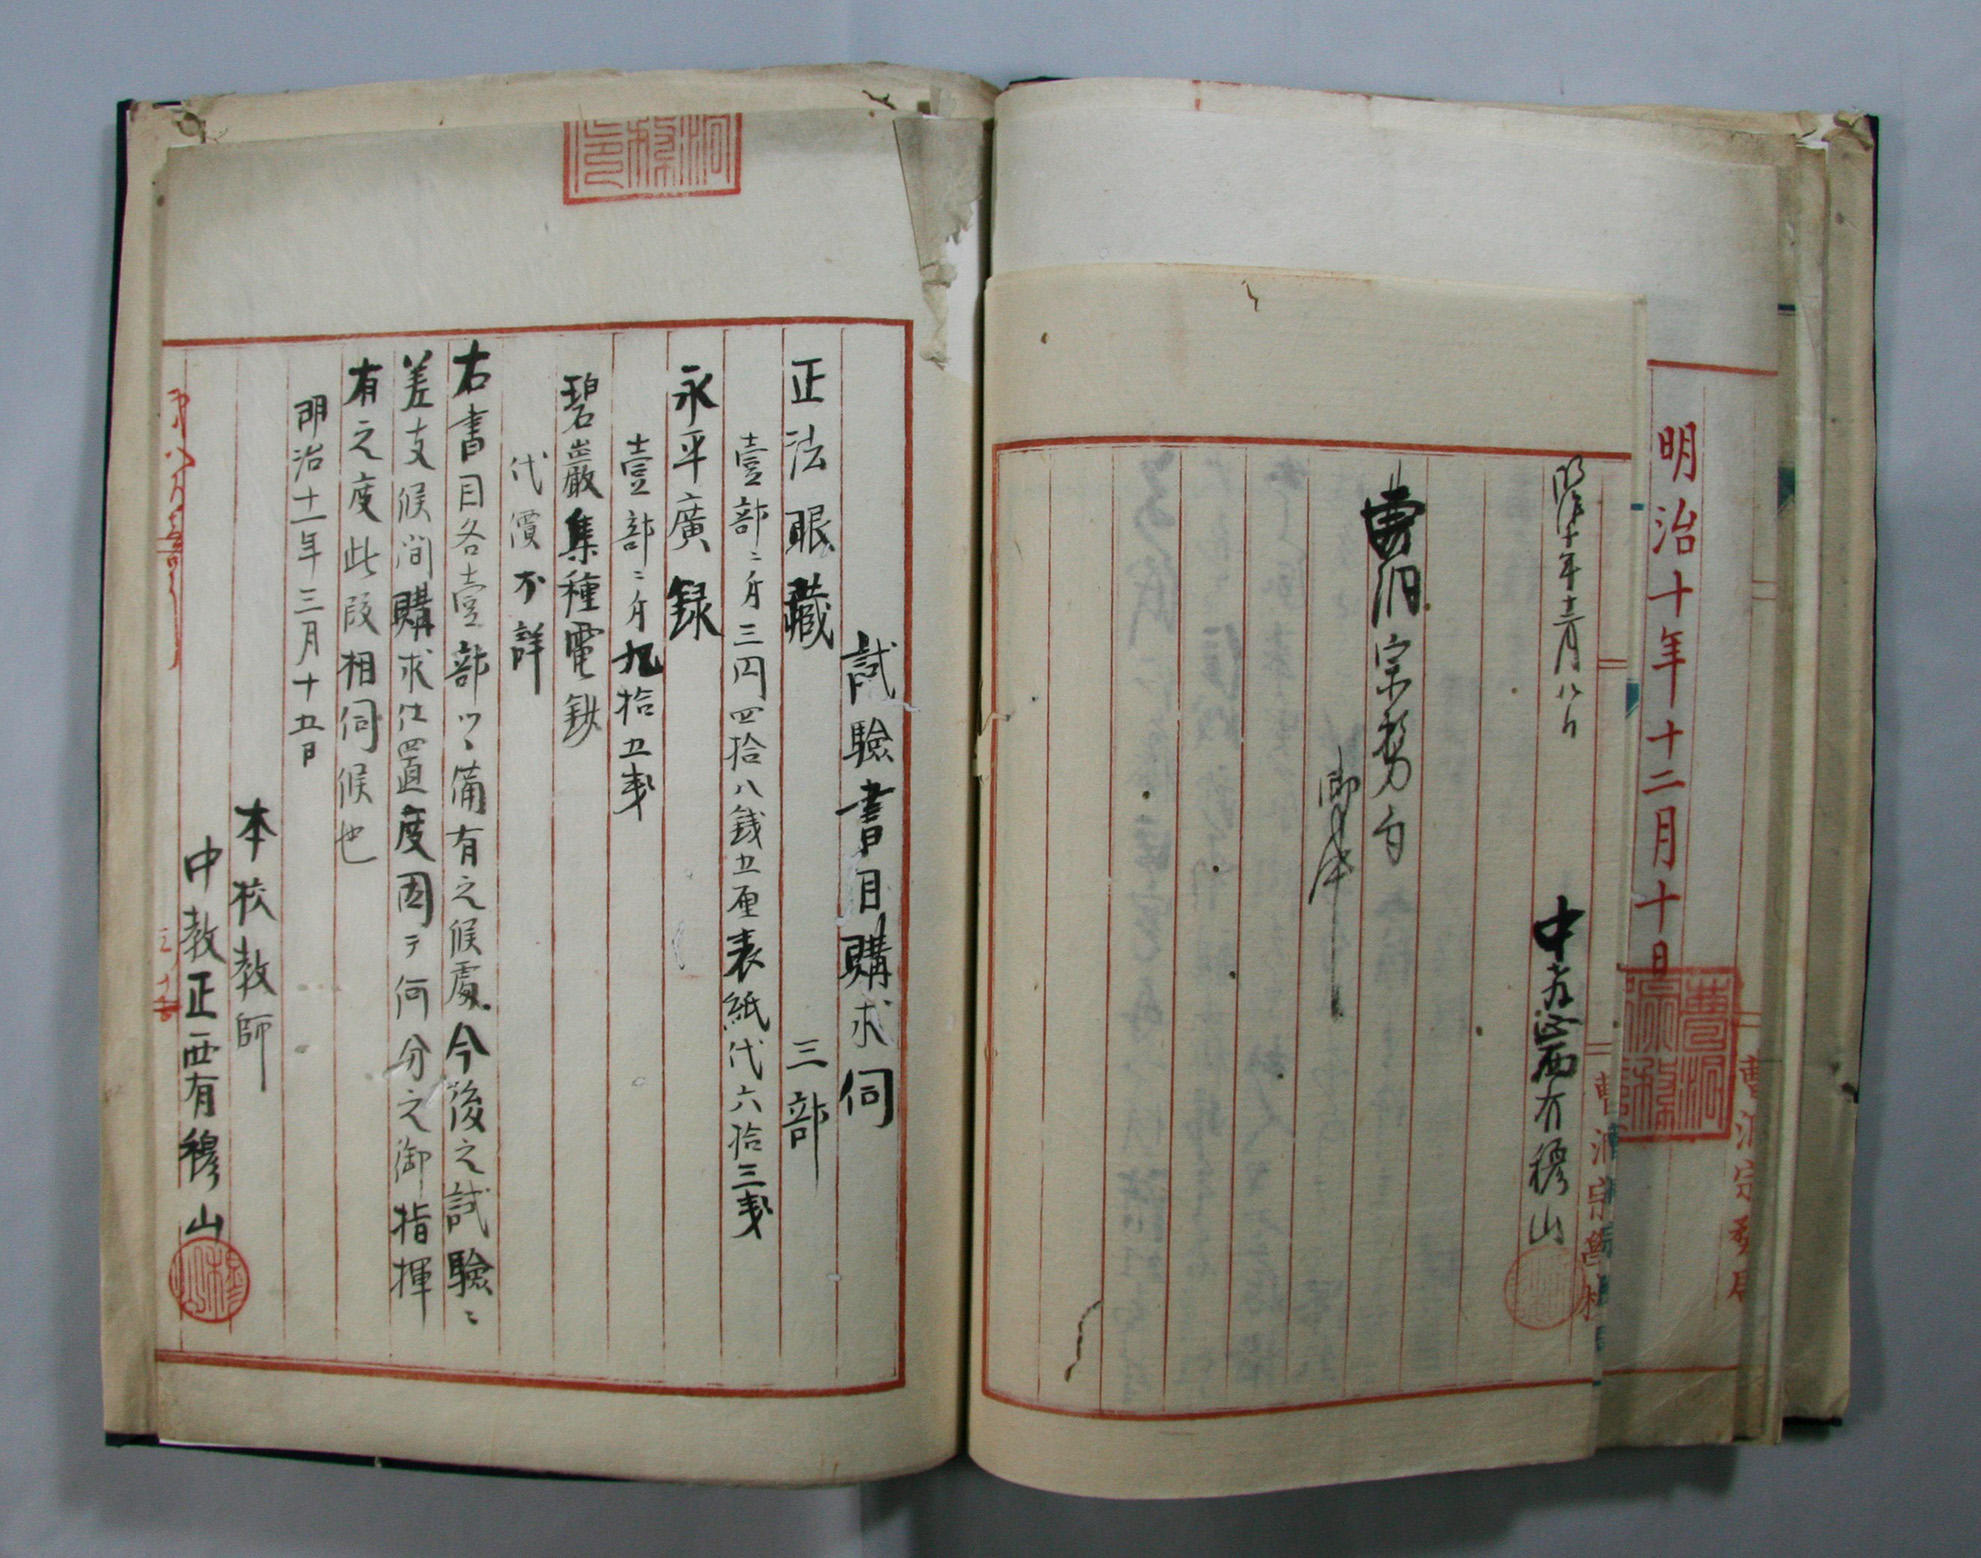 明治十年十二月十日
曹洞宗務局
曹洞宗専門学校
明治十年十二月八日
中教正西有穆山
曹洞宗務局
御中
試驗書目購求伺
正法眼藏　三部
壹部ニ付三円四拾八銭五厘表紙代六拾三銭
永平廣録
壹部ニ付九拾五銭
碧巖集種電鈔
代價不詳
右書目各壹部ツヽ備有之候處今後之試驗ニ
差支候间購求仕置度因テ何分之御指揮
有之度此段相伺候也
明治十一年三月十五日
本校教師
中教正西有穆山